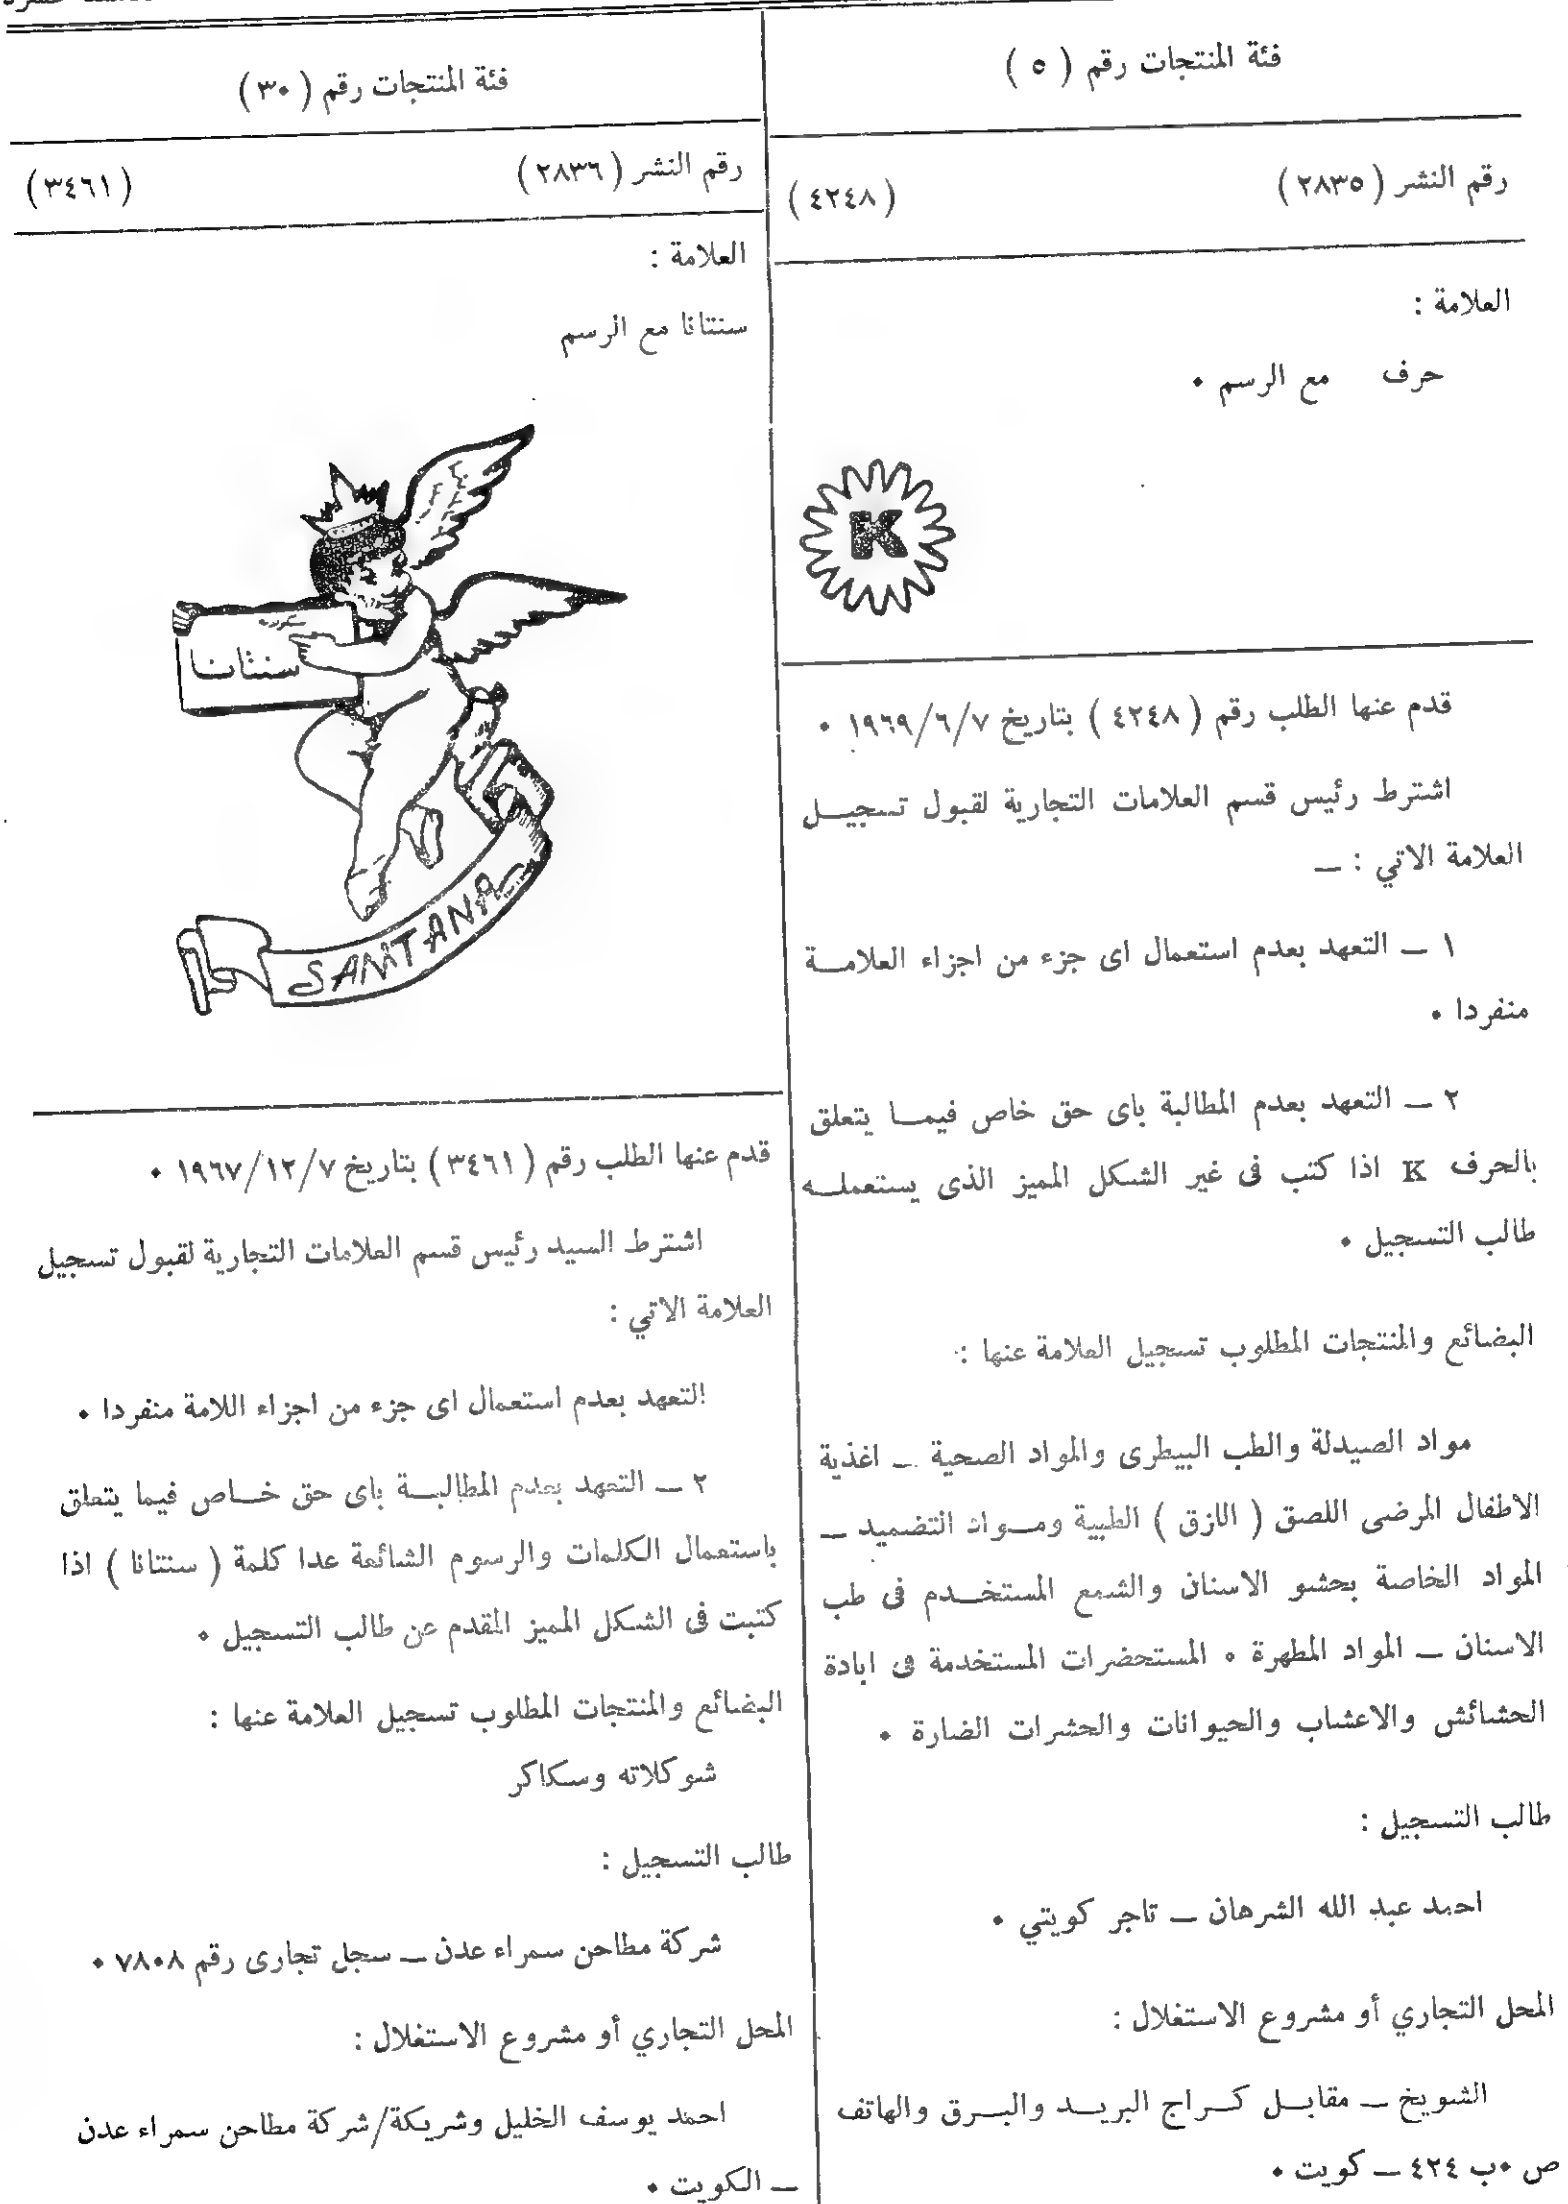 فئة المنتجات رقم ( ٥ )
رقم النشر ( ٢٨٣٥ ) ( ٤٢٤٨ )
العلامة :
حرف مع الرسم •
K
قدم عنها الطلب رقم ( ٤٢٤٨ ) بتاريخ ١٩٦٩/٦/٧ •
اشترط رئيس قسم العلامات التجارية لقبول تسجيــل
العلامة الاتي : ــ
١ ــ التعهد بعدم استعمال اى جزء من اجزاء العلامــة
منفردا •
٢ ــ التعهد بعدم المطالبة باى حق خاص فيمــا يتعلق
بالحرف K اذا كتب فى غير الشكل المميز الذى يستعملــه
طالب التسجيل •
البضائع والمنتجات المطلوب تسجيل العلامة عنها :
مواد الصيدلة والطب البيطرى والمواد الصحية ــ اغذية
الاطفال المرضى اللصق ( الازق ) الطبية ومــواد التضميد ــ
المواد الخاصة بحشو الاسنان والشمع المستخــدم فى طب
الاسنان ــ المواد المطهرة • المستحضرات المستخدمة فى ابادة
الحشائش والاعشاب والحيوانات والحشرات الضارة •
طالب التسجيل :
احمد عبد الله الشرهان ــ تاجر كويتي •
المحل التجاري أو مشروع الاستغلال :
الشويخ ــ مقابــل كــراج البريــد والبــرق والهاتف
ص •ب ٤٢٤ ــ كويت •
فئة المنتجات رقم ( ٣٠ )
رقم النشر ( ٢٨٣٦ ) ( ٣٤٦١ )
العلامة :
سنتانا مع الرسم
سنتانا
SANTANA
قدم عنها الطلب رقم ( ٣٤٦١ ) بتاريخ ١٩٦٧/١٢/٧ •
اشترط السيد رئيس قسم العلامات التجارية لقبول تسجيل
العلامة الاتي :
التعهد بعدم استعمال اى جزء من اجزاء اللامة منفردا •
٢ ــ التعهد بعدم المطالبــة باى حق خــاص فيما يتعلق
باستعمال الكلمات والرسوم الشائعة عدا كلمة ( سنتانا ) اذا
كتبت فى الشكل المميز المقدم عن طالب التسجيل •
البضائع والمنتجات المطلوب تسجيل العلامة عنها :
شوكلاته وسكاكر
طالب التسجيل :
شركة مطاحن سمراء عدن ــ سجل تجارى رقم ٧٨٠٨ •
المحل التجاري أو مشروع الاستغلال :
احمد يوسف الخليل وشريكة/شركة مطاحن سمراء عدن
ــ الكويت •